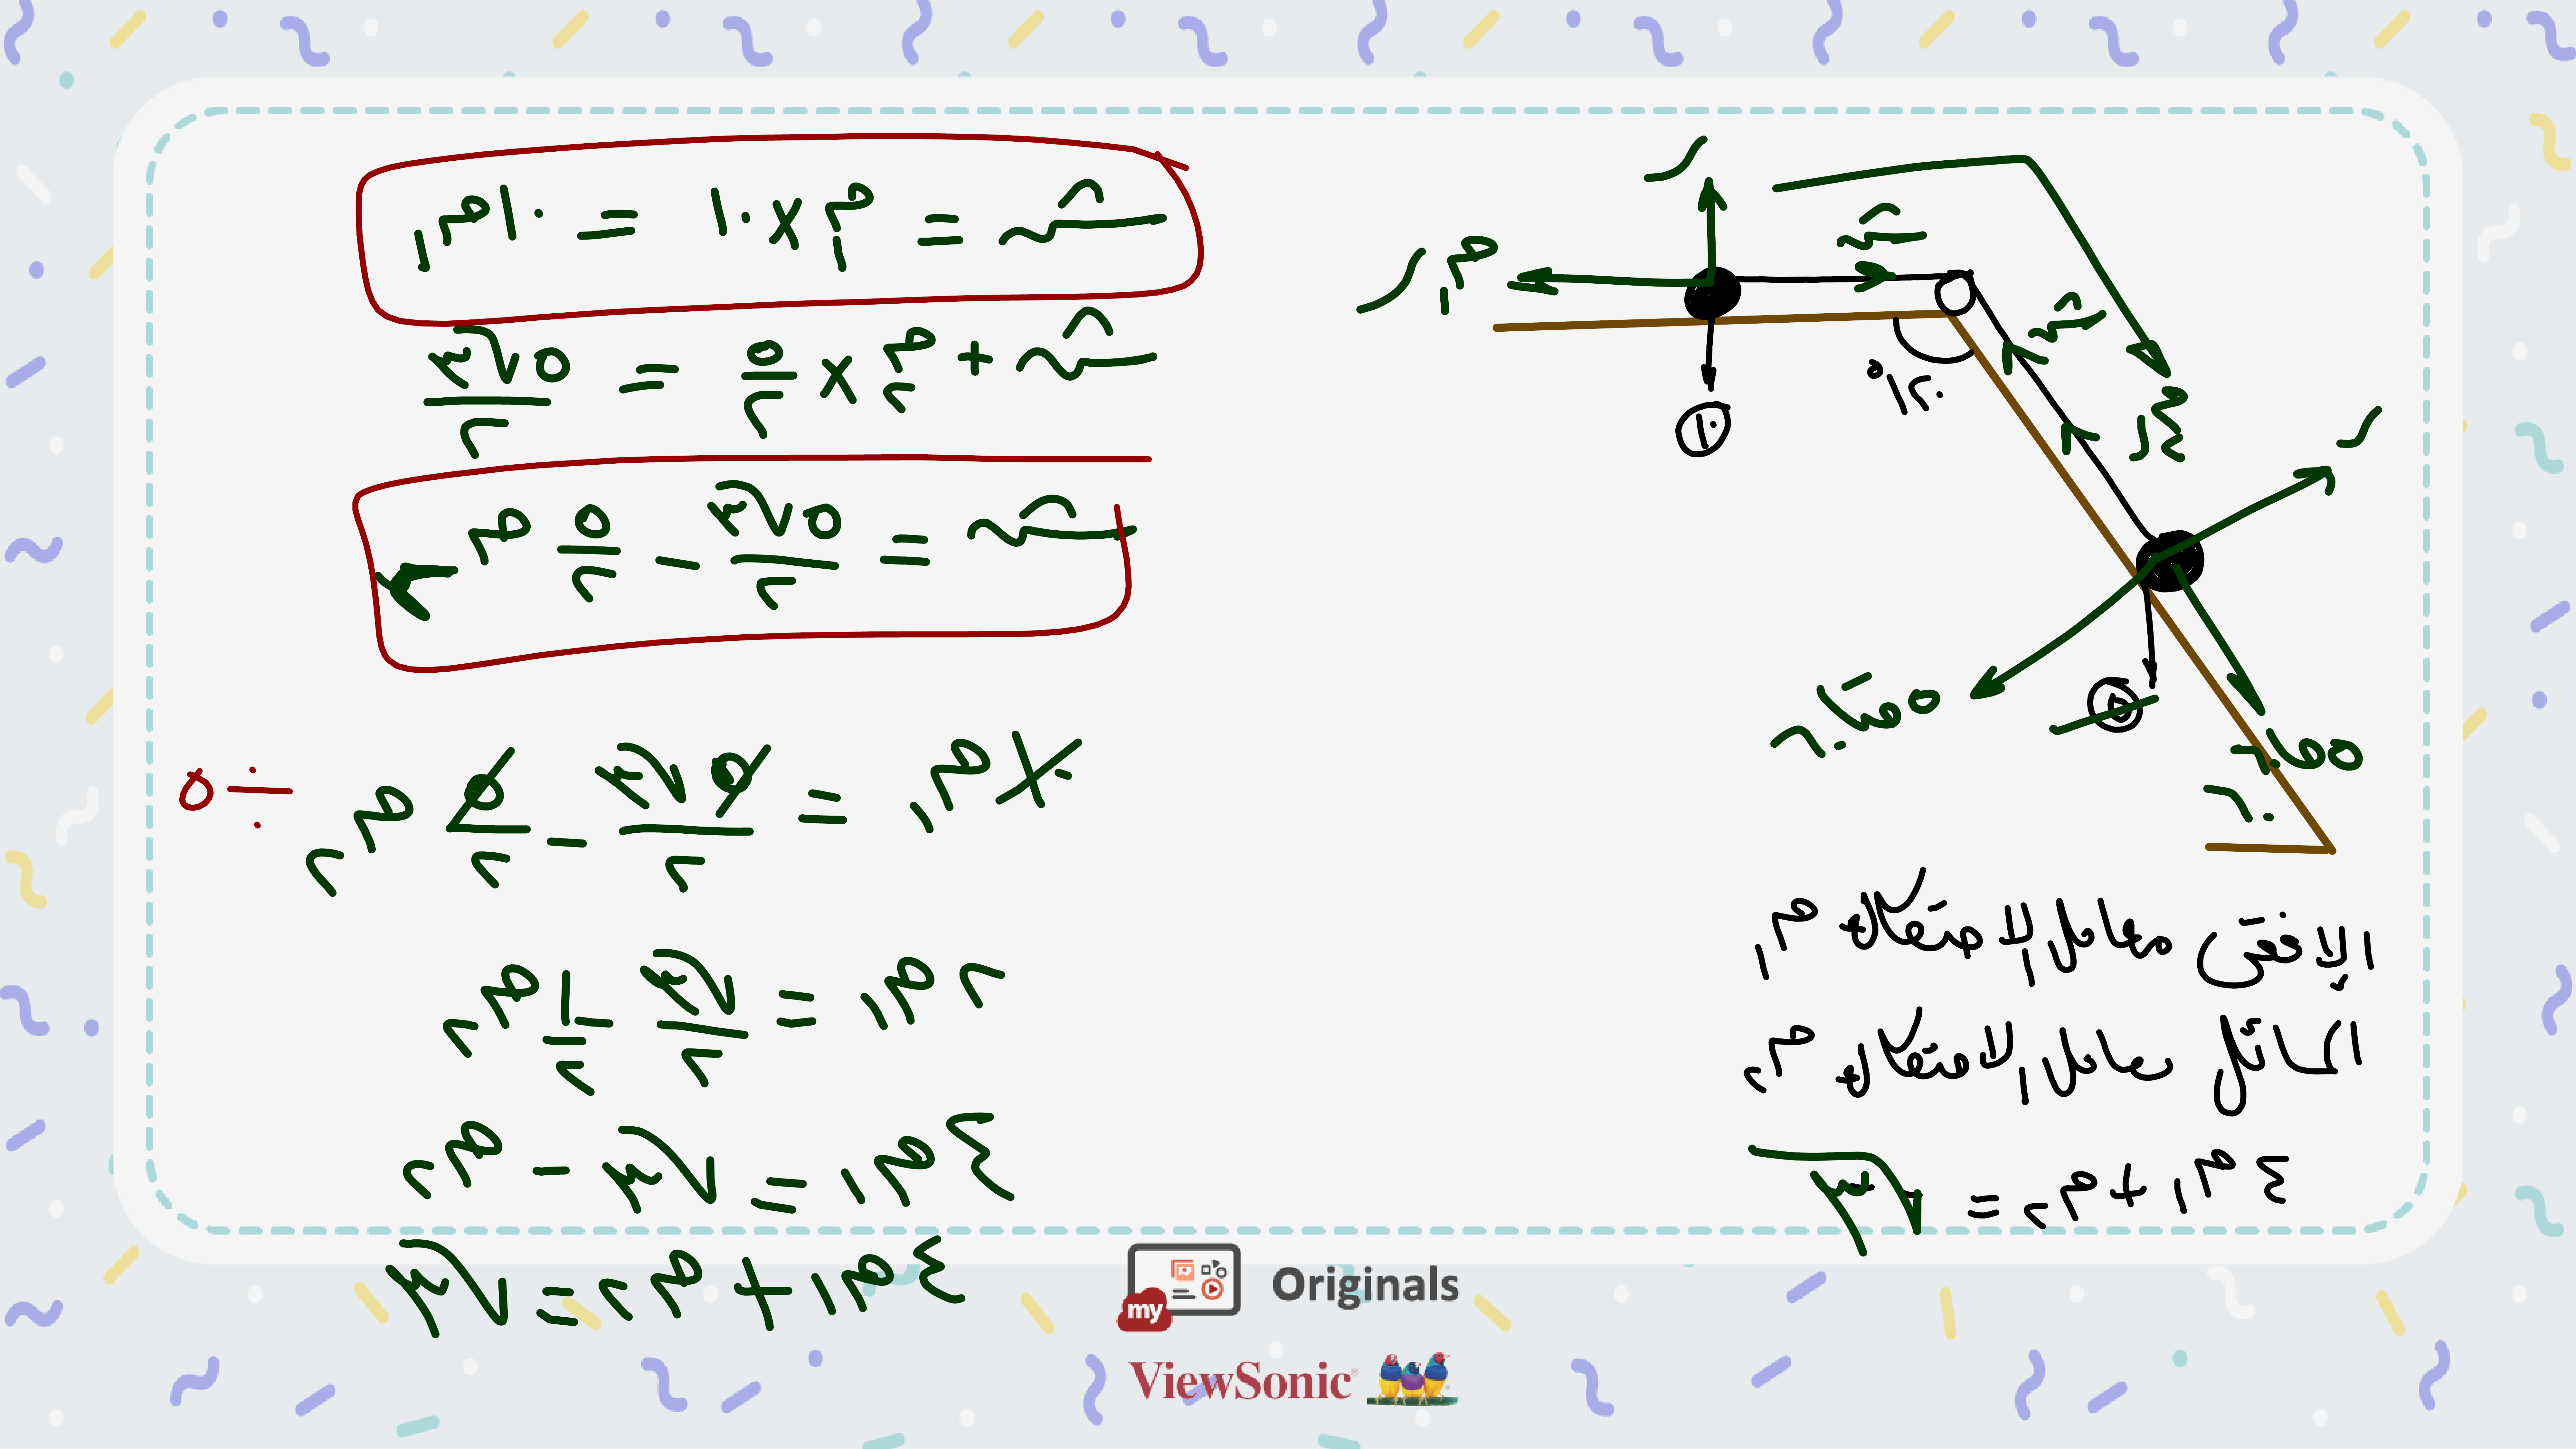 ش = م١ × ١٠ = ١٠م١
ش + م٢ × ٥/٢ = ٥√٣/٢
ش = ٥√٣/٢ - ٥/٢ م٢
١٠م١ = ٥√٣/٢ - ٥/٢ م٢ ÷ ٥
٢م١ = √٣/٢ - ١/٢ م٢
٤م١ = √٣ - م٢
٤م١ + م٢ = √٣
ر
م١ر
ش
ش
١٢٠°
١٠
ر
٥
٥حتا٦٠
٥حا٦٠
الافقى معامل الاحتكاك م١
المائل معامل الاحتكاك م٢
٤م١ + م٢ = √٣
my Originals
ViewSonic